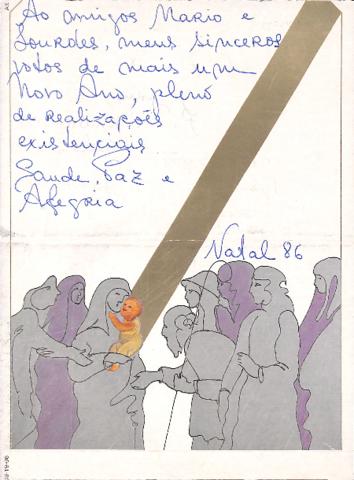 Ao amigos Mario e
Lourdes, meus sinceros
votos de mais um
Novo Ano, pleno
de realizações
existenciais.
Saude, Paz e
Alegria
Natal 86